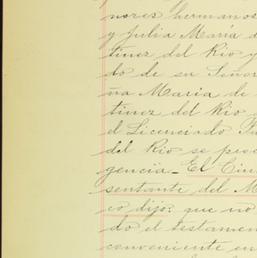 nores hermanos
y Julia María d
tinez del Rio y
do de su Señor
ña Maria de
tinez del Rio
el Licenciado
del Rio se pres
gencia_ El Ciu
sentante del M
co dijo: que no
do el testamen
conveniente en